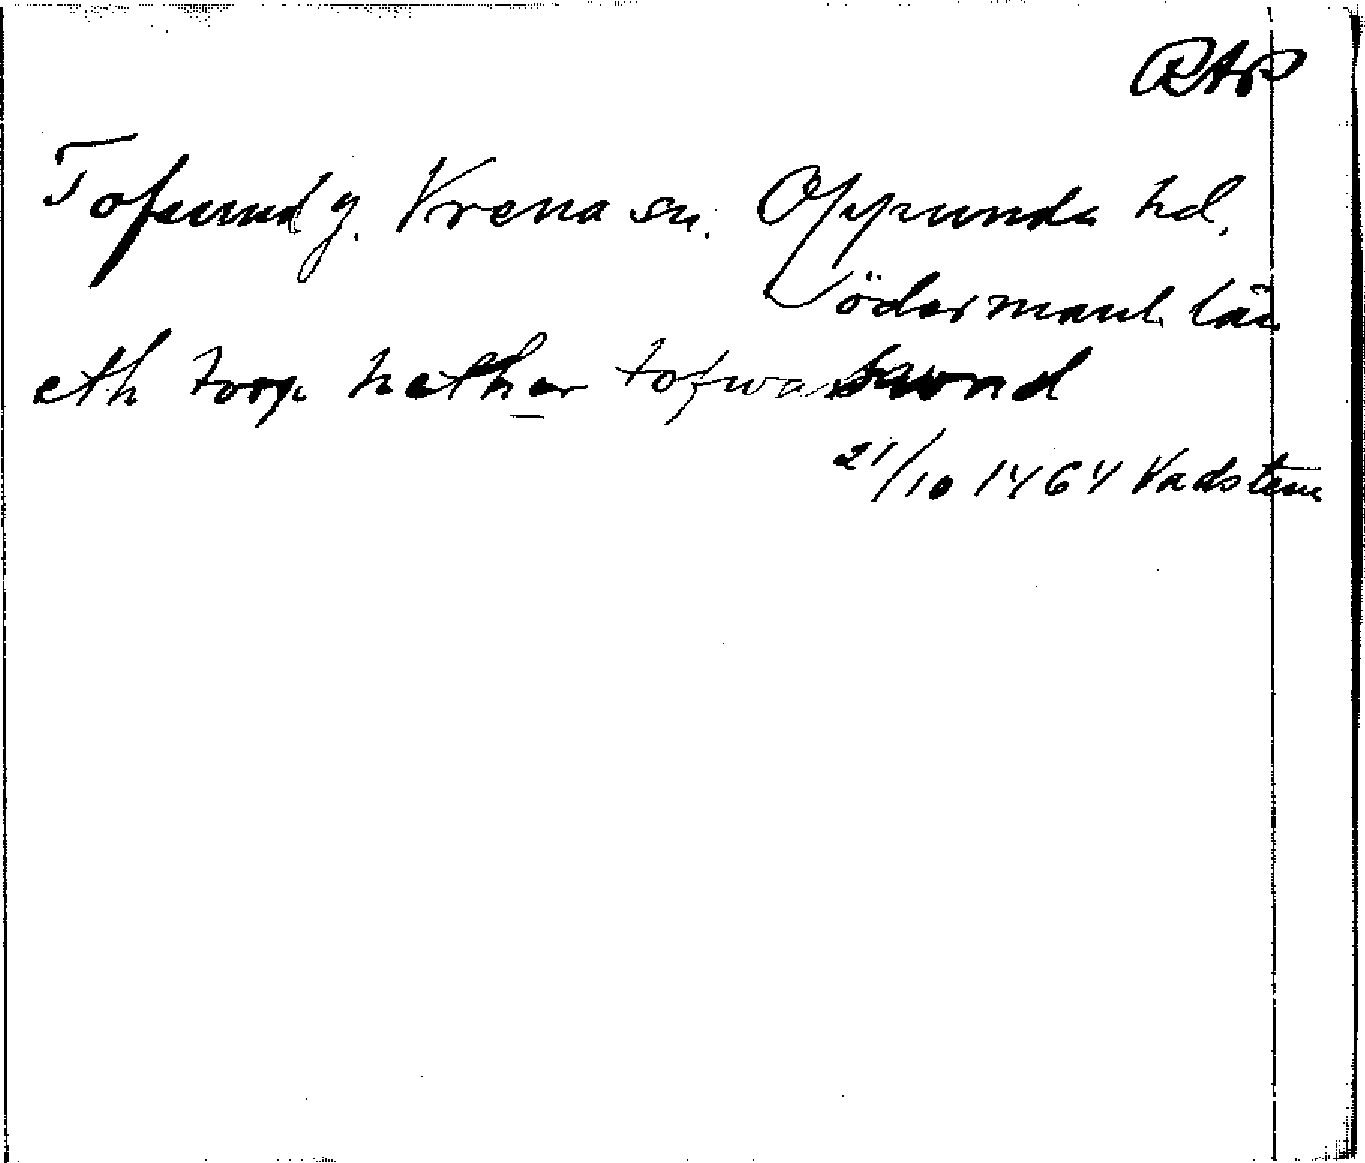 RAP
Tofsund g. Vrena sn. Oppunda hd.
Södermanl. län
eth torp hether tofwassund
21/10 1464 Vadstena